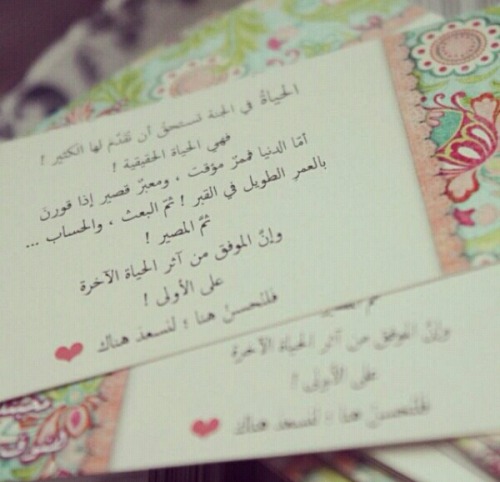 الحياةُ في الجنة تستحق أن تُقدّم لها الكثير !
فهي الحياة الحقيقية !
أمّا الدنيا فممرٌ مؤقت ، ومعبرٌ قصير إذا قورنَ
بالعمرِ الطويل في القبر ! ثمّ البعث ، والحساب ...
ثمَّ المصير !
وإنّ الموفق من آثر الحياة الآخرة
على الأولى !
فلنُحسنْ هنا ؛ لنسعدَ هناك ❤
ثمَّ المصير !
وإنّ الموفق من آثر الحياة الآخرة
على الأولى !
فلنُحسنْ هنا ؛ لنسعدَ هناك ❤